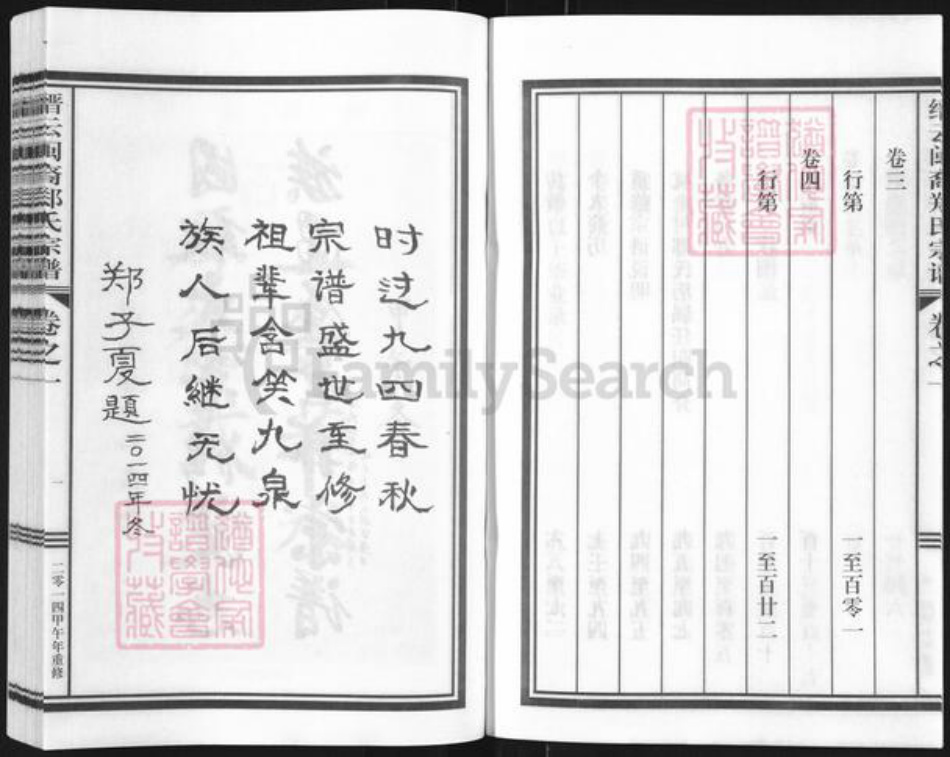 缙云闽裔郑氏宗谱
卷之一
卷三
行第
一至百零一
卷四
行第
一至百廿二
时过九四春秋
宗谱盛世至修
祖辈含笑九泉
族人后继无忧
郑子夏题
二〇一四年冬
缙云闽裔郑氏宗谱
卷之一
一
二零一四甲午年重修
谱学会
收藏
FamilySearch